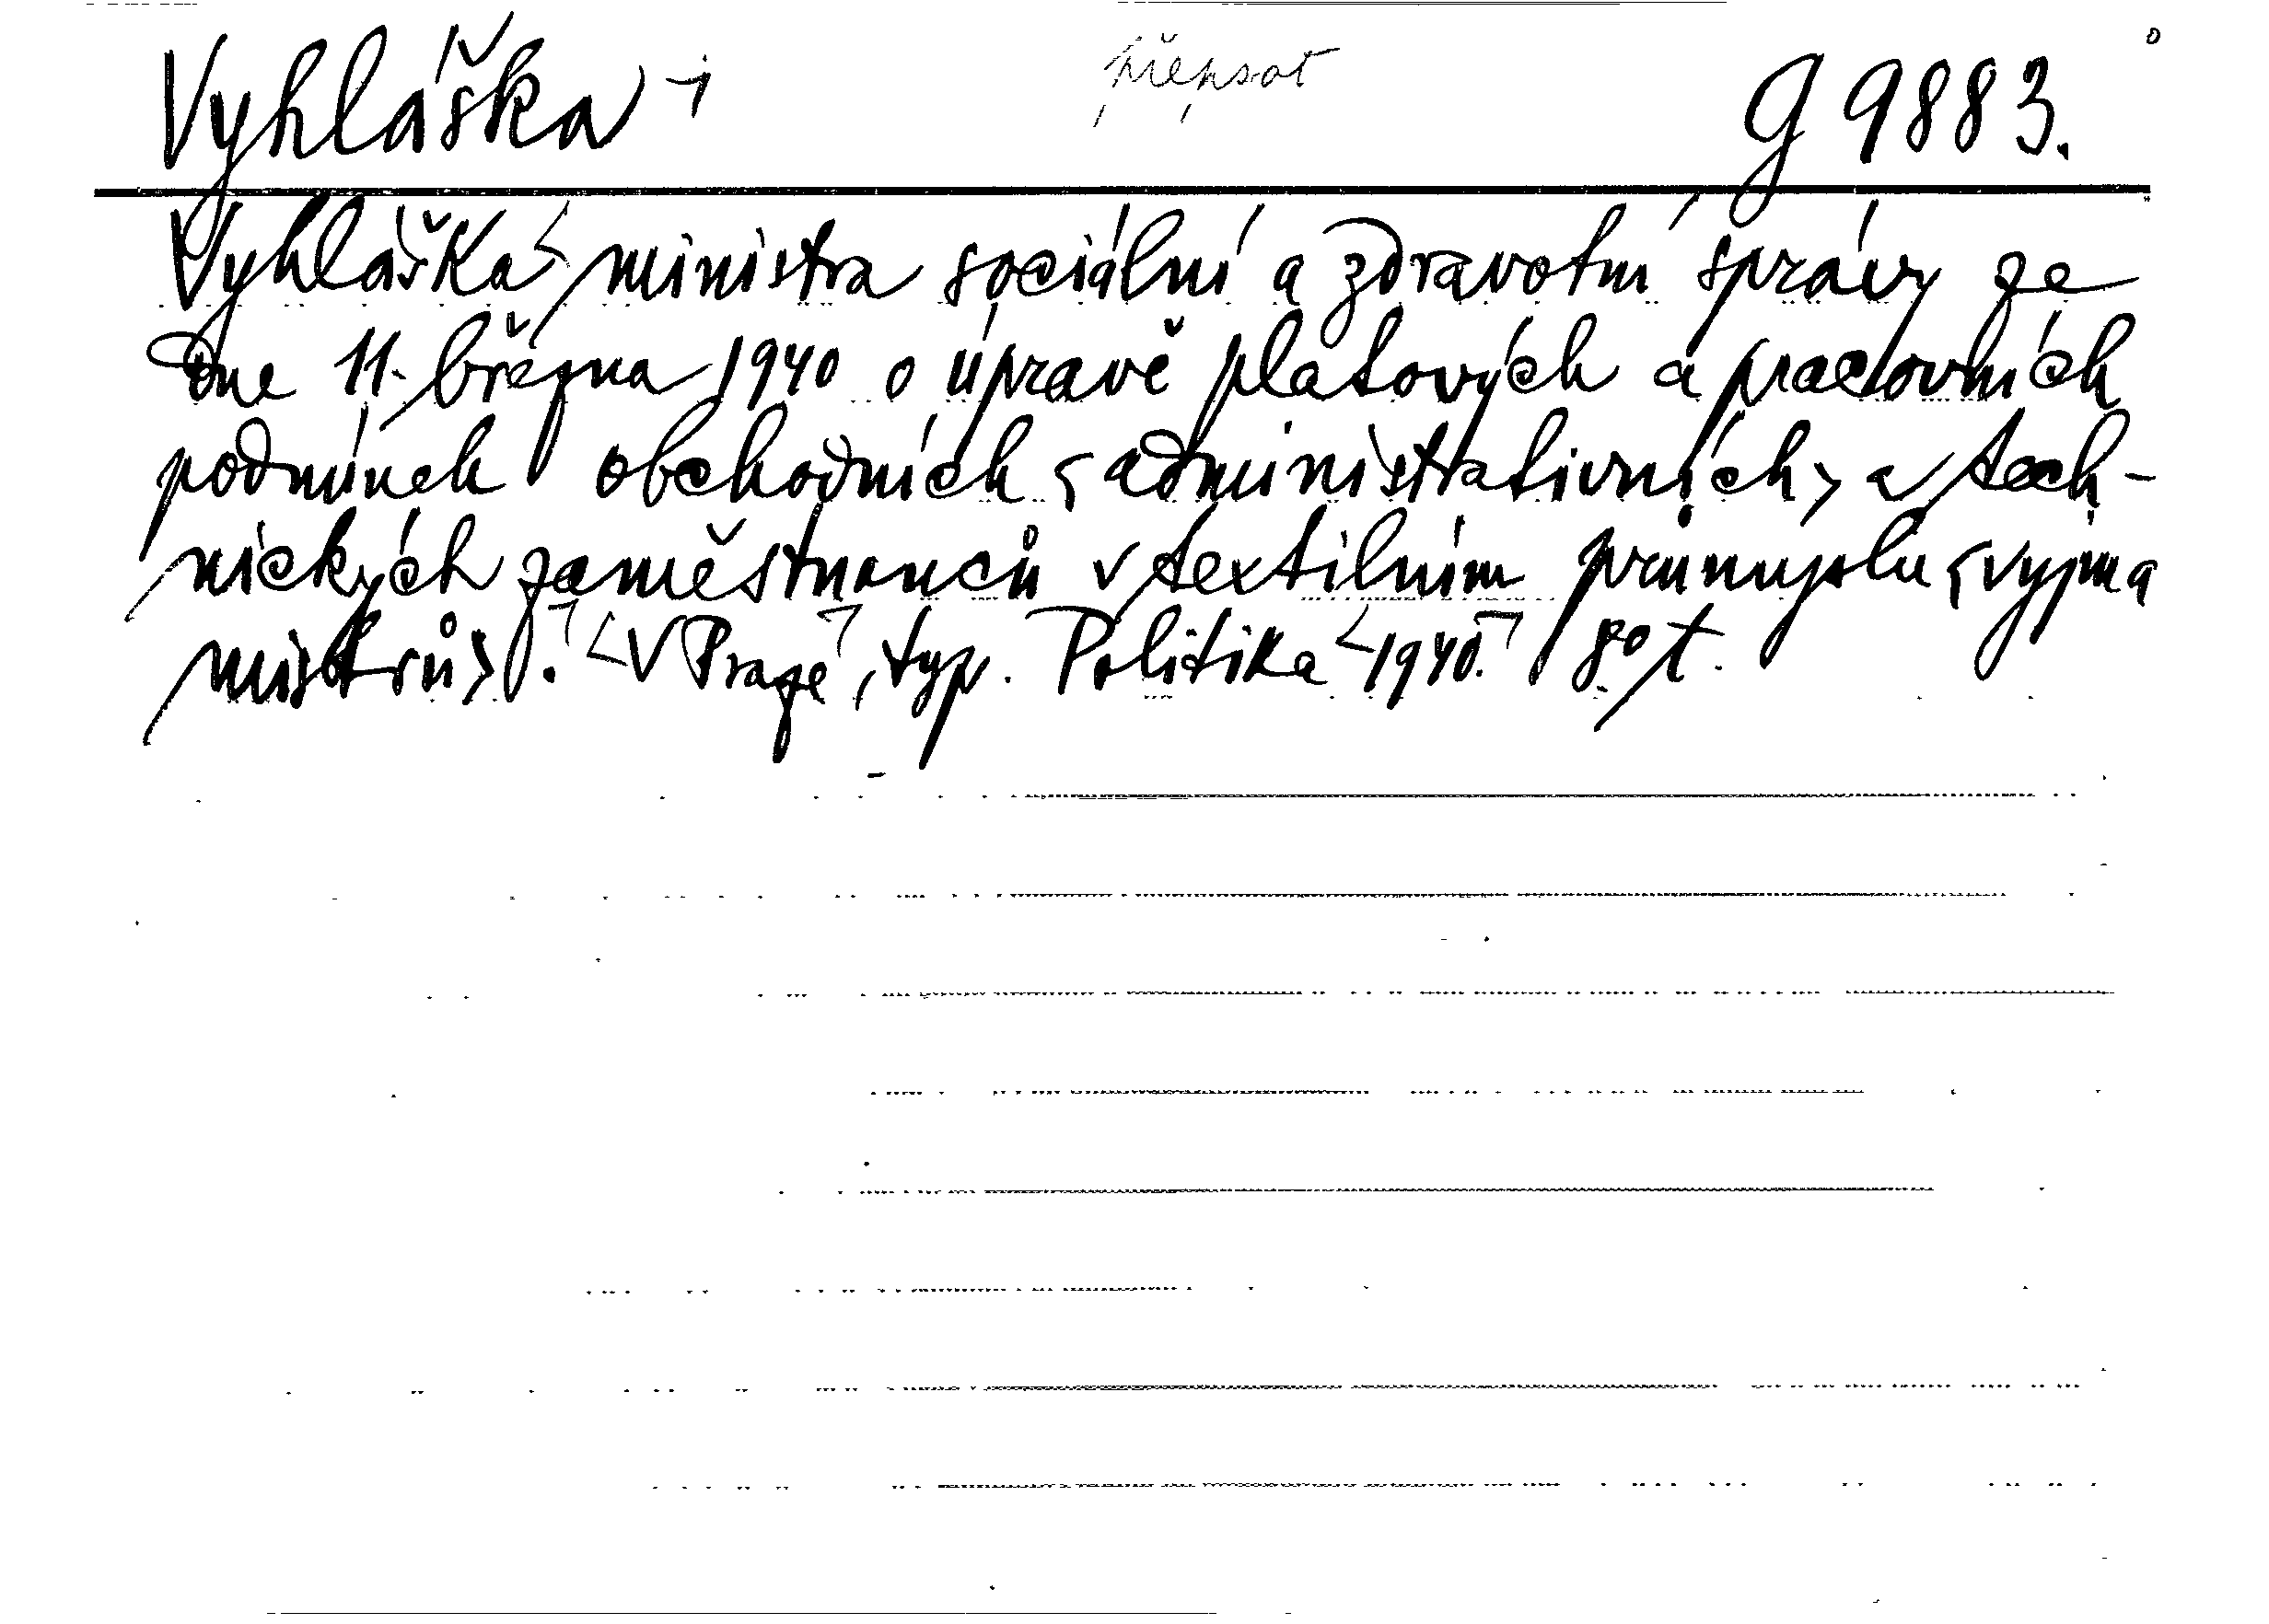 Vyhláška přepsat g 9883.
Vyhláška ministra sociální a zdravotní správy ze
dne 11. března 1940 o úpravě platových a pracovních
podmínek obchodních (administrativních) a tech-
nických zaměstnanců v textilním průmyslu (vyjma
mistrů). V Praze, typ. Politika 1940. 8° t.